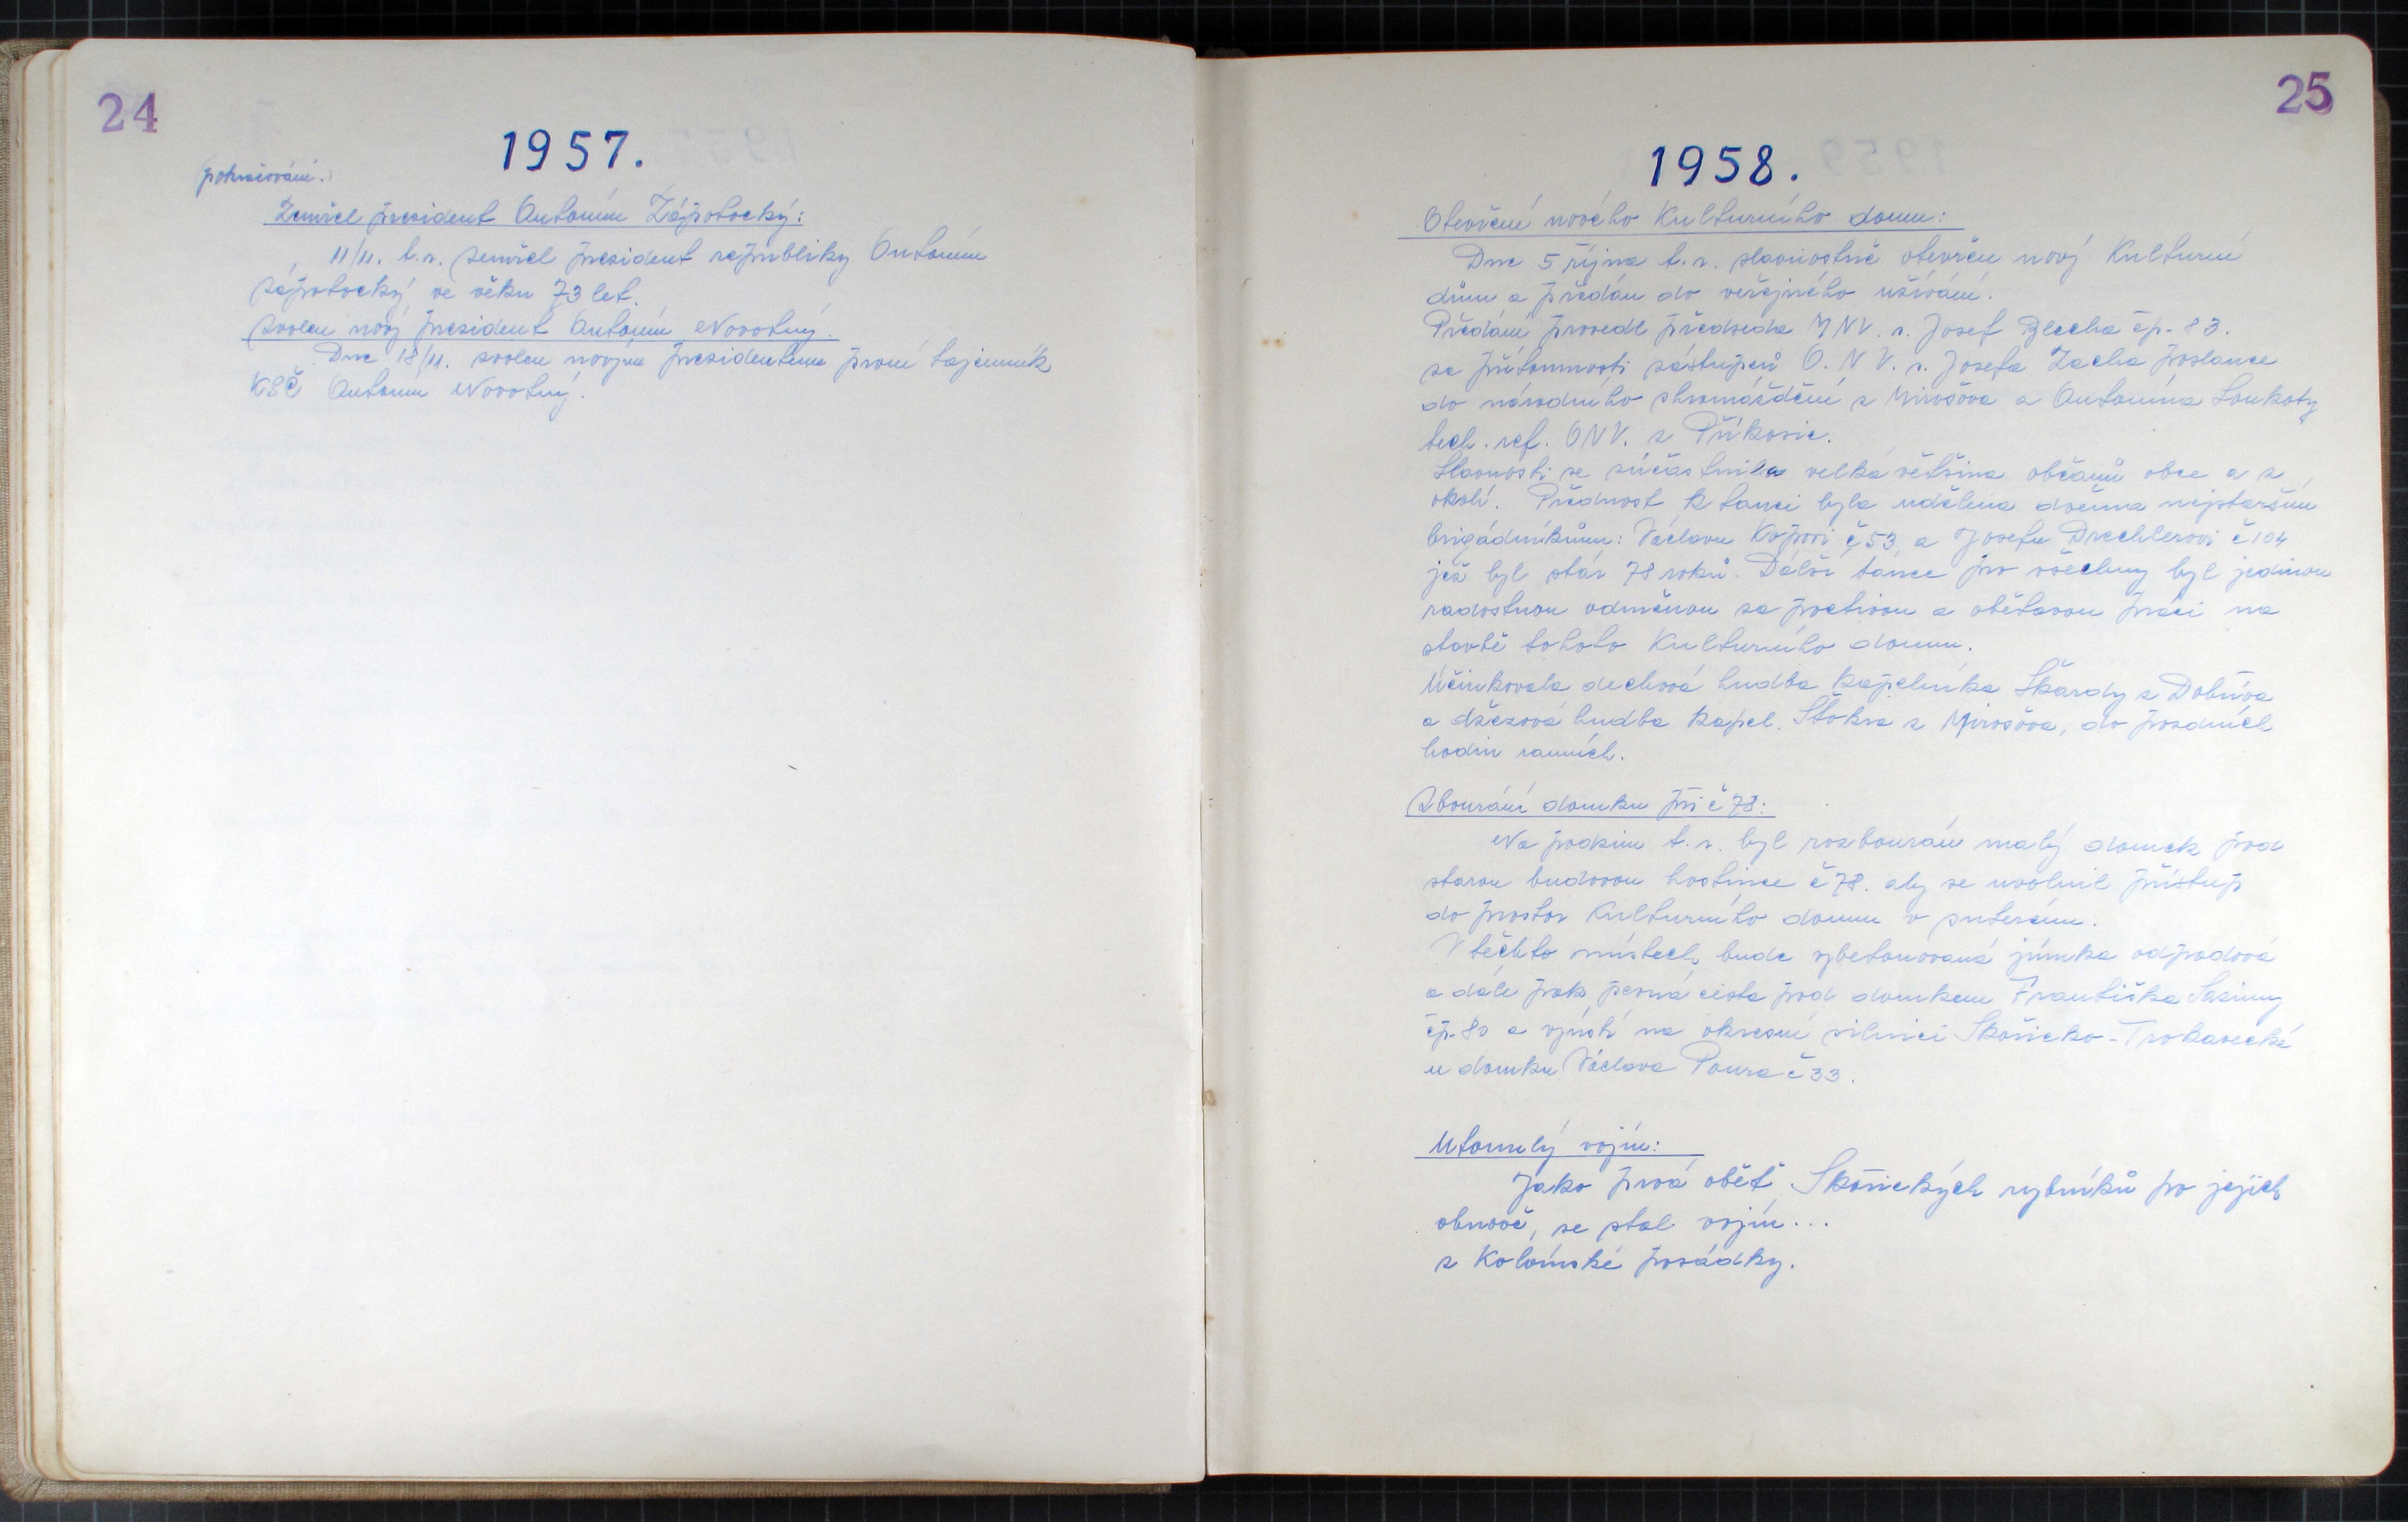 24
1957.
(pokračování.)
Zemřel president Antonín Zápotocký:
11/11. t.r. zemřel president republiky Antonín
Zápotocký, ve věku 73 let.
Zvolen nový president Antonín Novotný.
Dne 18/11. zvolen novým presidentem první tajemník
KSČ Antonín Novotný.
25
1958.
Otevření nového Kulturního domu:
Dne 5 října t.r. slavnostně otevřen nový Kulturní
dům a předán do veřejného užívání.
Předání provedl předseda MNV. s. Josef Blecha čp. 83.
za přítomnosti zástupců O.N.V. s. Josefa Zacha poslance
do národního shromáždění z Mirošova a Antonína Loukoty
tech. ref. ONV. z Příkosic.
Slavnosti se zúčastnila velká většina občanů obce a z
okolí. Přednost k tanci byla udělena dvěma nejstarším
brigádníkům: Václavu Kopori č 53 a Josefu Drechlerovi č 104
jež byl stár 78 roků. Další tance pro všechny byl jedinou
radostnou odměnou za poctivou a obětavou práci na
stavbě tohoto Kulturního domu.
Účinkovala dechová hudba kapelníka Škardy z Dobříva
a džezová hudba kapel. Štokra z Mirošova, do pozdních
hodin ranních.
Zbourání domku při č 78:
Na podzim t.r. byl rozbourán malý domek pod
starou budovou hostince č 78. aby se uvolnil přístup
do prostor Kulturního domu v suterénu.
V těchto místech bude vybetonovaná jímka odpadová
a dále pak pevná cesta pod domkem Františka Saziny
čp. 80 a vyústí na okresní silnici Skořicko-Trokavecké
u domku Václava Poura č 33.
Utonulý vojín:
Jako prvá oběť Skořických rybníků po jejich
obnově, se stal vojín...
z Kolvínské posádky.